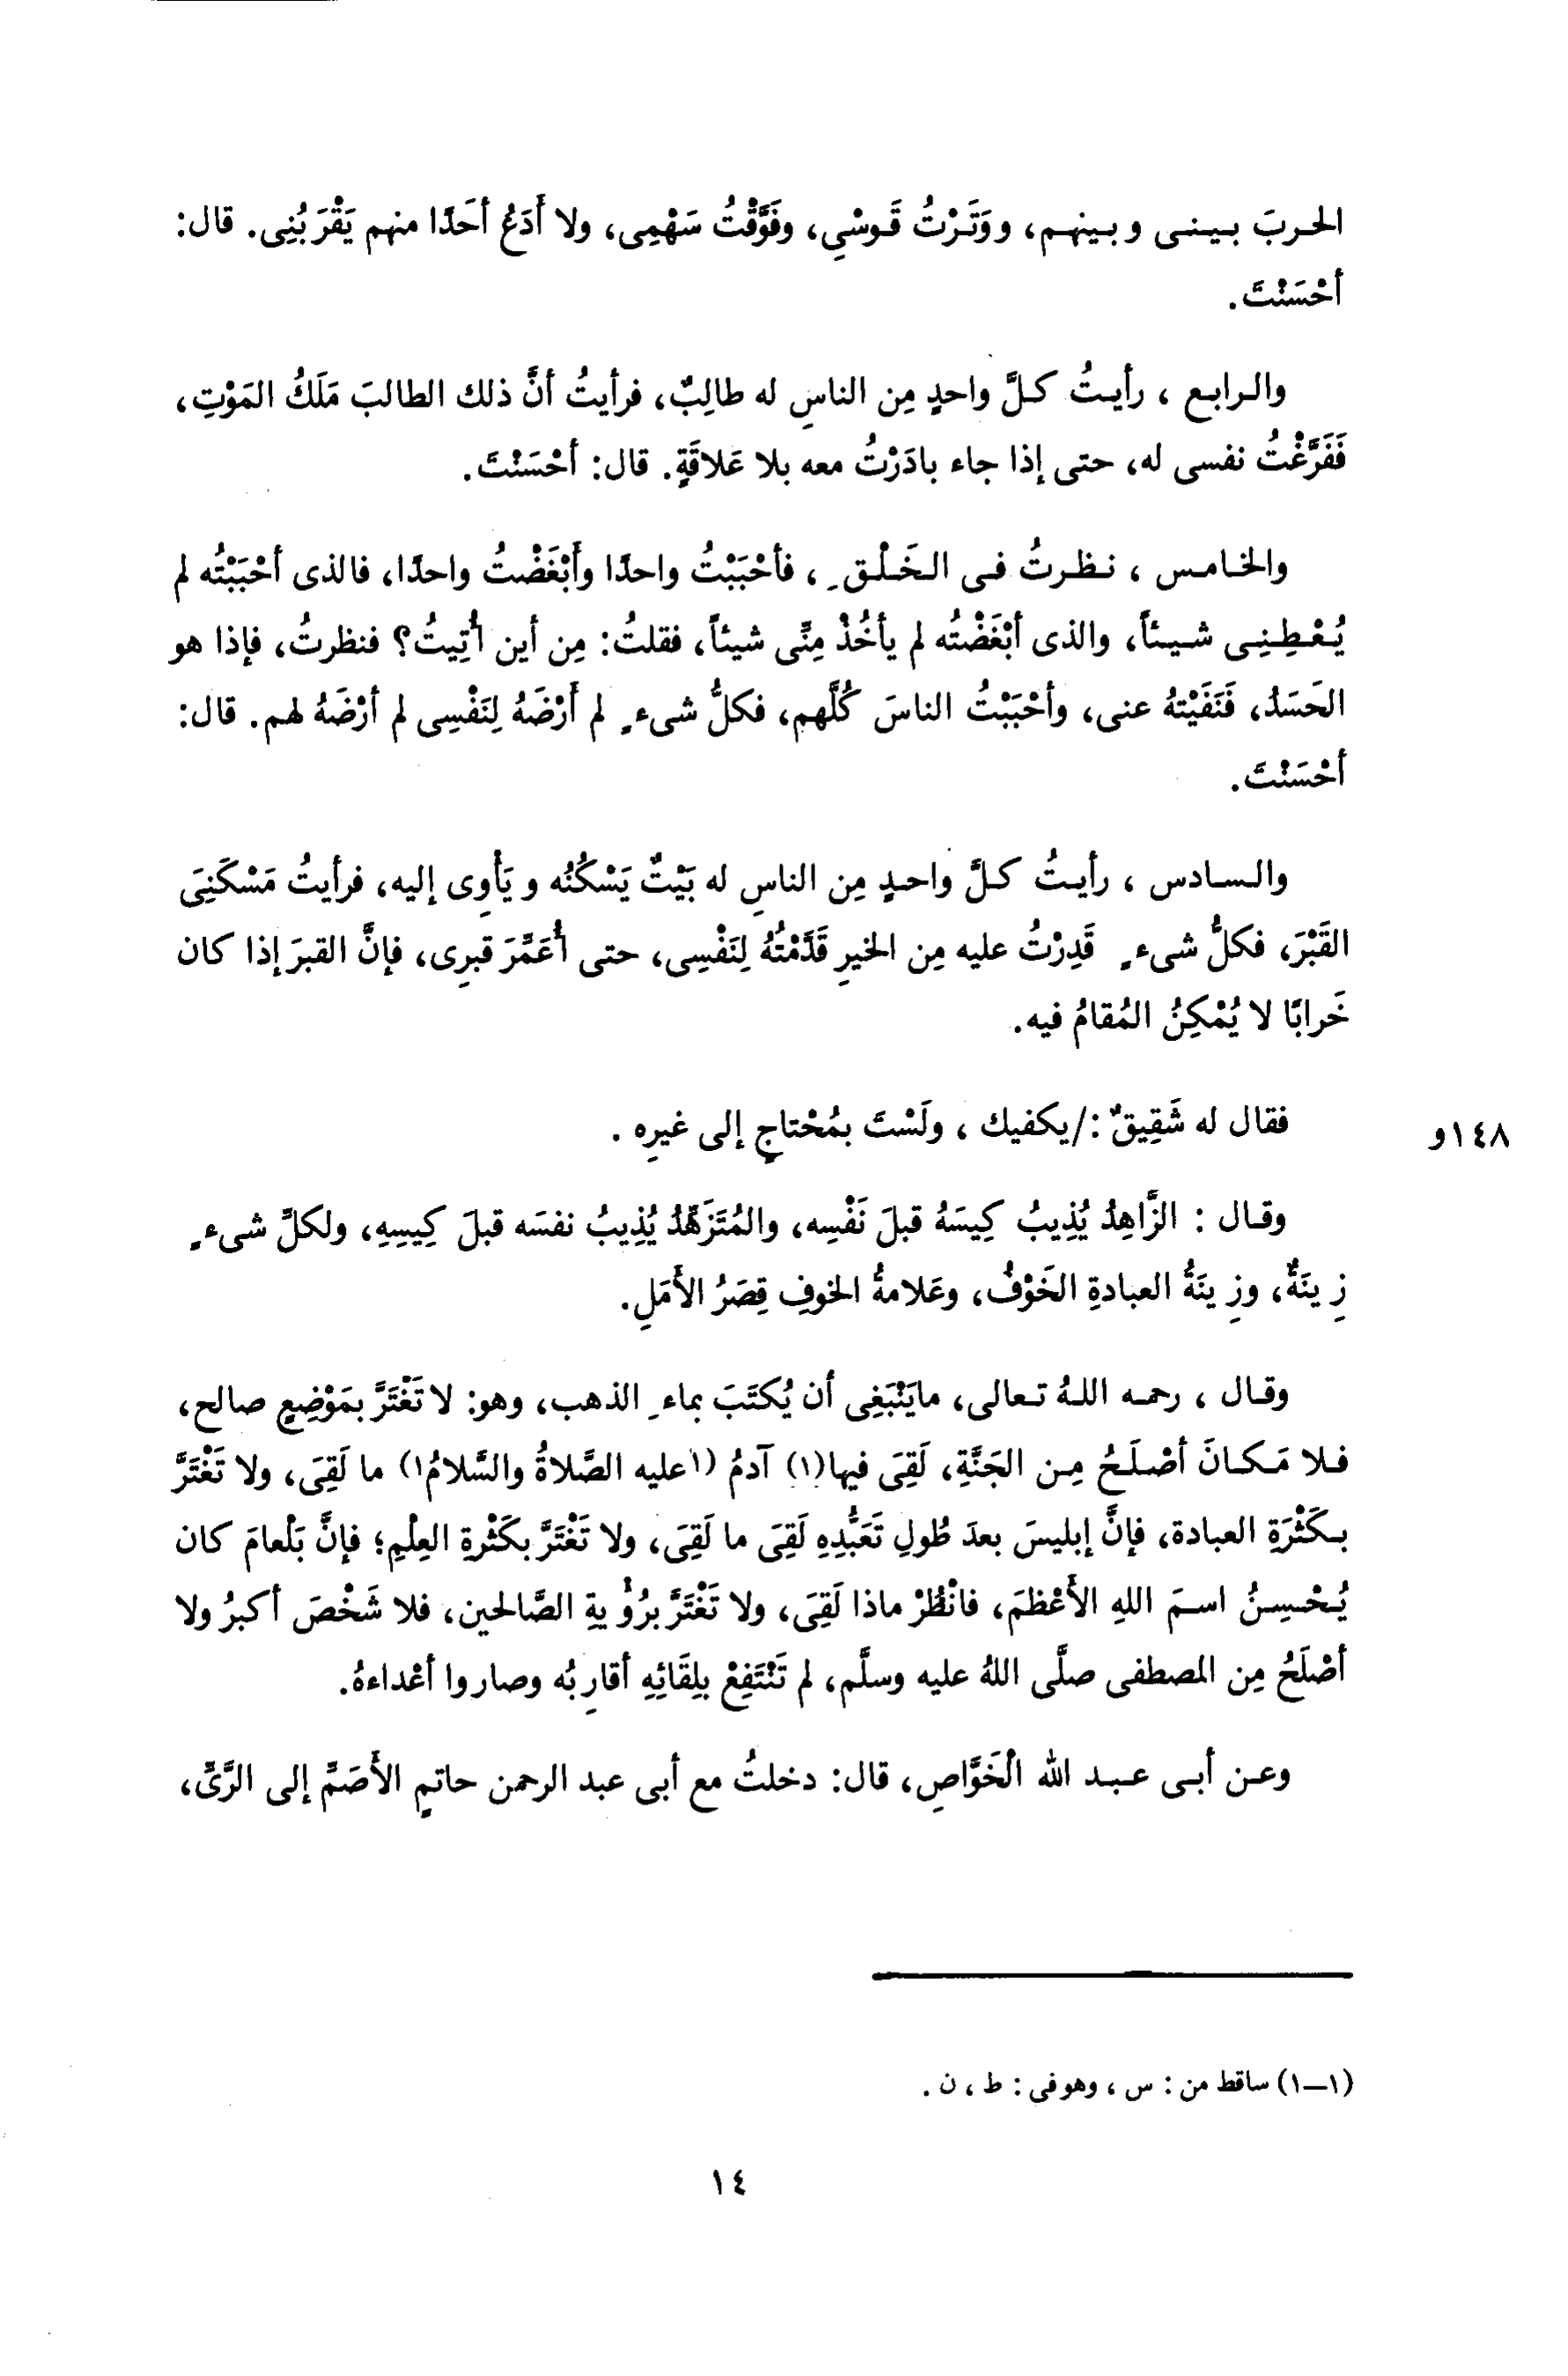 الحربَ بينى وبينهم، ووَتَرْتُ قَوسْىِ، وفَوَّقْتُ سَهْمِى، ولا أَدَعُ أحَدًا منهم يَقْرَبُنِى. قال:
أحْسَنْتَ.
والرابع ، رأيتُ كلَّ واحدٍ مِن الناسِ له طالِبٌ، فرأيتُ أنَّ ذلك الطالبَ مَلَكُ المَوْتِ،
فَفَرَّغْتُ نفسى له، حتى إذا جاء بادَرْتُ معه بلا عَلاقَةٍ. قال: أحْسَنْتَ.
والخامس ، نظرتُ فى الخَلْقِ ، فأحْبَبْتُ واحدًا وأَبْغَضْتُ واحدًا، فالذى أحْبَبْتُه لم
يُعْطِنِى شيئاً، والذى أبْغَضْتُه لم يأخُذْ مِنِّى شيئاً، فقلتُ: مِن أين أُتِيتُ؟ فنظرتُ، فإذا هو
الحَسَدُ، فَنَفَيْتهُ عنى، وأحْبَبْتُ الناسَ كُلَّهم، فكلُّ شىءٍ لم أَرْضَهُ لِنَفْسِى لم أرْضَهُ لهم. قال:
أحْسَنْتَ.
والسادس ، رأيتُ كلَّ واحدٍ مِن الناسِ له بَيْتٌ يَسْكُنُه ويَأوِى إليه، فرأيتُ مَسْكَنِىَ
القَبْرَ، فكلُّ شىءٍ قَدِرْتُ عليه مِن الخيرِ قَدَّمْتُهُ لِنَفْسِى، حتى أُعَمِّرَ قبرِى، فإنَّ القبرَ إذا كان
خَرابًا لا يُمْكِنُ المُقامُ فيه.
فقال له شَقِيقٌ :/يكفيك ، ولَسْتَ بمُحْتاجٍ إلى غيرِه .
١٤٨و
وقال : الزَّاهِدُ يُذِيبُ كِيسَهُ قبلَ نَفْسِه، والمُتَزَهِّدُ يُذِيبُ نفسَه قبلَ كِيسِهِ، ولكلِّ شىءٍ
زِينَةٌ، وزِينَةُ العبادةِ الخَوْفُ، وعَلامةُ الخوفِ قِصَرُ الأمَلِ.
وقال ، رحمه اللهُ تعالى، مايَنْبَغِى أن يُكتَبَ بماءِ الذهب، وهو: لا تَغْتَرَّ بمَوْضِعٍ صالح،
فلا مَكانَ أصْلَحُ مِن الجَنَّةِ، لَقِىَ فيها(١) آدمُ (١عليه الصَّلاةُ والسَّلامُ١) ما لَقِىَ، ولا تَغْتَرَّ
بكَثْرَةِ العبادة، فإنَّ إبليسَ بعدَ طُولِ تَعَبُّدِهِ لَقِىَ ما لَقِىَ، ولا تَغْتَرَّ بكَثْرةِ العِلْمِ؛ فإنَّ بَلْعامَ كان
يُحْسِنُ اسمَ اللهِ الأَعْظمَ، فانْظُرْ ماذا لَقِىَ، ولا تَغْتَرَّ برُؤْيةِ الصَّالحين، فلا شَخْصَ أكبرُ ولا
أصْلَحُ مِن المصطفى صلَّى اللهُ عليه وسلَّم، لم تَنْتَفِعْ بلِقَائِهِ أقارِبُه وصاروا أعْداءهُ.
وعن أبى عبد الله الْخَوَّاصِ، قال: دخلتُ مع أبى عبد الرحمن حاتمٍ الأصَمِّ إلى الرَّىِّ،
(١–١) ساقط من : س ، وهو فى : ط ، ن .
١٤